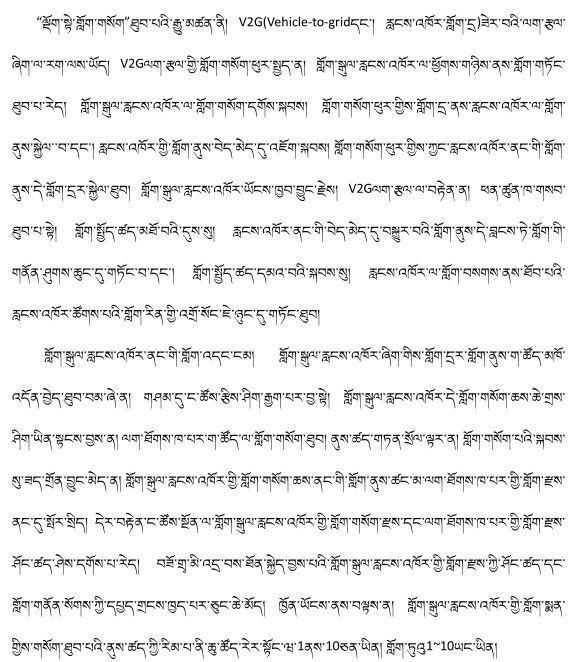 “ལྡོག་སྟེ་གློག་གསོག”ཐུབ་པའི་རྒྱུ་མཚན་ནི། V2G(Vehicle-to-gridདང་། རླངས་འཁོར་གློག་དྲ)ཟེར་བའི་ལག་རྩལ་
ཞིག་ལ་རག་ལས་ཡོད། V2Gལག་རྩལ་གྱི་གློག་གསོག་ཕུར་སྤྱད་ན། གློག་སྒུལ་རླངས་འཁོར་ལ་ཕྱོགས་གཉིས་ནས་གློག་གཏོང་
ཐུབ་པ་རེད། གློག་སྒུལ་རླངས་འཁོར་ལ་གློག་གསོག་དགོས་སྐབས། གློག་གསོག་ཕུར་གྱིས་གློག་དྲ་ནས་རླངས་འཁོར་ལ་གློག་
ནུས་སྐྱེལ་་བ་དང་། རླངས་འཁོར་གྱི་གློག་ནུས་བེད་མེད་དུ་འཇོག་སྐབས། གློག་གསོག་ཕུར་གྱིས་ཀྱང་རླངས་འཁོར་ནང་གི་གློག་
ནུས་དེ་གློག་དྲར་སྐྱེལ་ཐུབ། གློག་སྒུལ་རླངས་འཁོར་ཡོངས་ཁྱབ་བྱུང་རྗེས། V2Gལག་རྩལ་ལ་བརྟེན་ན། ཕན་ཚུན་ཁ་གསབ་
ཐུབ་པ་སྟེ། གློག་སྤྱོད་ཚད་མཐོ་བའི་དུས་སུ། རླངས་འཁོར་ནང་གི་བེད་མེད་དུ་བསྐྱུར་བའི་གློག་ནུས་དེ་བླངས་ཏེ་གློག་གི་
གནོན་ཤུགས་ཆུང་དུ་གཏོང་བ་དང་། གློག་སྤྱོད་ཚད་དམའ་བའི་སྐབས་སུ། རླངས་འཁོར་ལ་གློག་བསགས་ནས་ཐོབ་པའི་
རླངས་འཁོར་ཚོགས་པའི་གློག་རིན་གྱི་འགྲོ་སོང་ཇེ་ཉུང་དུ་གཏོང་ཐུབ།
གློག་སྒུལ་རླངས་འཁོར་ནང་གི་གློག་འདང་ངམ། གློག་སྒུལ་རླངས་འཁོར་ཞིག་གིས་གློག་དྲར་གློག་ནུས་ག་ཚོད་མཁོ་
འདོན་བྱེད་ཐུབ་བམ་ཞེ་ན། གཤམ་དུ་ང་ཚོས་རྩིས་ཤིག་རྒྱག་པར་བྱ་སྟེ། གློག་སྒུལ་རླངས་འཁོར་དེ་གློག་གསོག་ཆས་ཆེ་གྲས་
ཤིག་ཡིན་སྟངས་བྱས་ན། ལག་ཐོགས་ཁ་པར་ག་ཚོད་ལ་གློག་གསོག་ཐུབ། ནུས་ཚད་གཏན་སྲོལ་ལྟར་ན། གློག་གསོག་པའི་སྐབས་
སུ་ཟད་གྲོན་བྱུང་མེད་ན། གློག་སྒུལ་རླངས་འཁོར་གྱི་གློག་གསོག་ཆས་ནང་གི་གློག་ནུས་ཚང་མ་ལག་ཐོགས་ཁ་པར་གྱི་གློག་རྫས་
ནང་དུ་སྤོར་སྲིད། དེར་བརྟེན་ང་ཚོས་སྔོན་ལ་གློག་སྒུལ་རླངས་འཁོར་གྱི་གློག་གསོག་རྫས་དང་ལག་ཐོགས་ཁ་པར་གྱི་གློག་རྫས་
ཤོང་ཚད་ཤེས་དགོས་པ་རེད། བཟོ་གྲྭ་མི་འདྲ་བས་ཐོན་སྐྱེད་བྱས་པའི་གློག་སྒུལ་རླངས་འཁོར་གྱི་གློག་རྫས་ཀྱི་ཤོང་ཚད་དང་
གློག་གནོན་སོགས་ཀྱི་དཔྱད་གྲངས་ཁྱད་པར་ཅུང་ཆེ་མོད། ཁྱོན་ཡོངས་ནས་བལྟས་ན། གློག་སྒུལ་རླངས་འཁོར་གྱི་གློག་སྨན་
གྱིས་གསོག་ཐུབ་པའི་ནུས་ཚད་ཀྱི་རིམ་པ་ནི་ཆུ་ཚོད་རེར་སྟོང་ཝ་1ནས་10ཅན་ཡིན། གློག་ཏུའུ1~10ཡང་ཡིན།